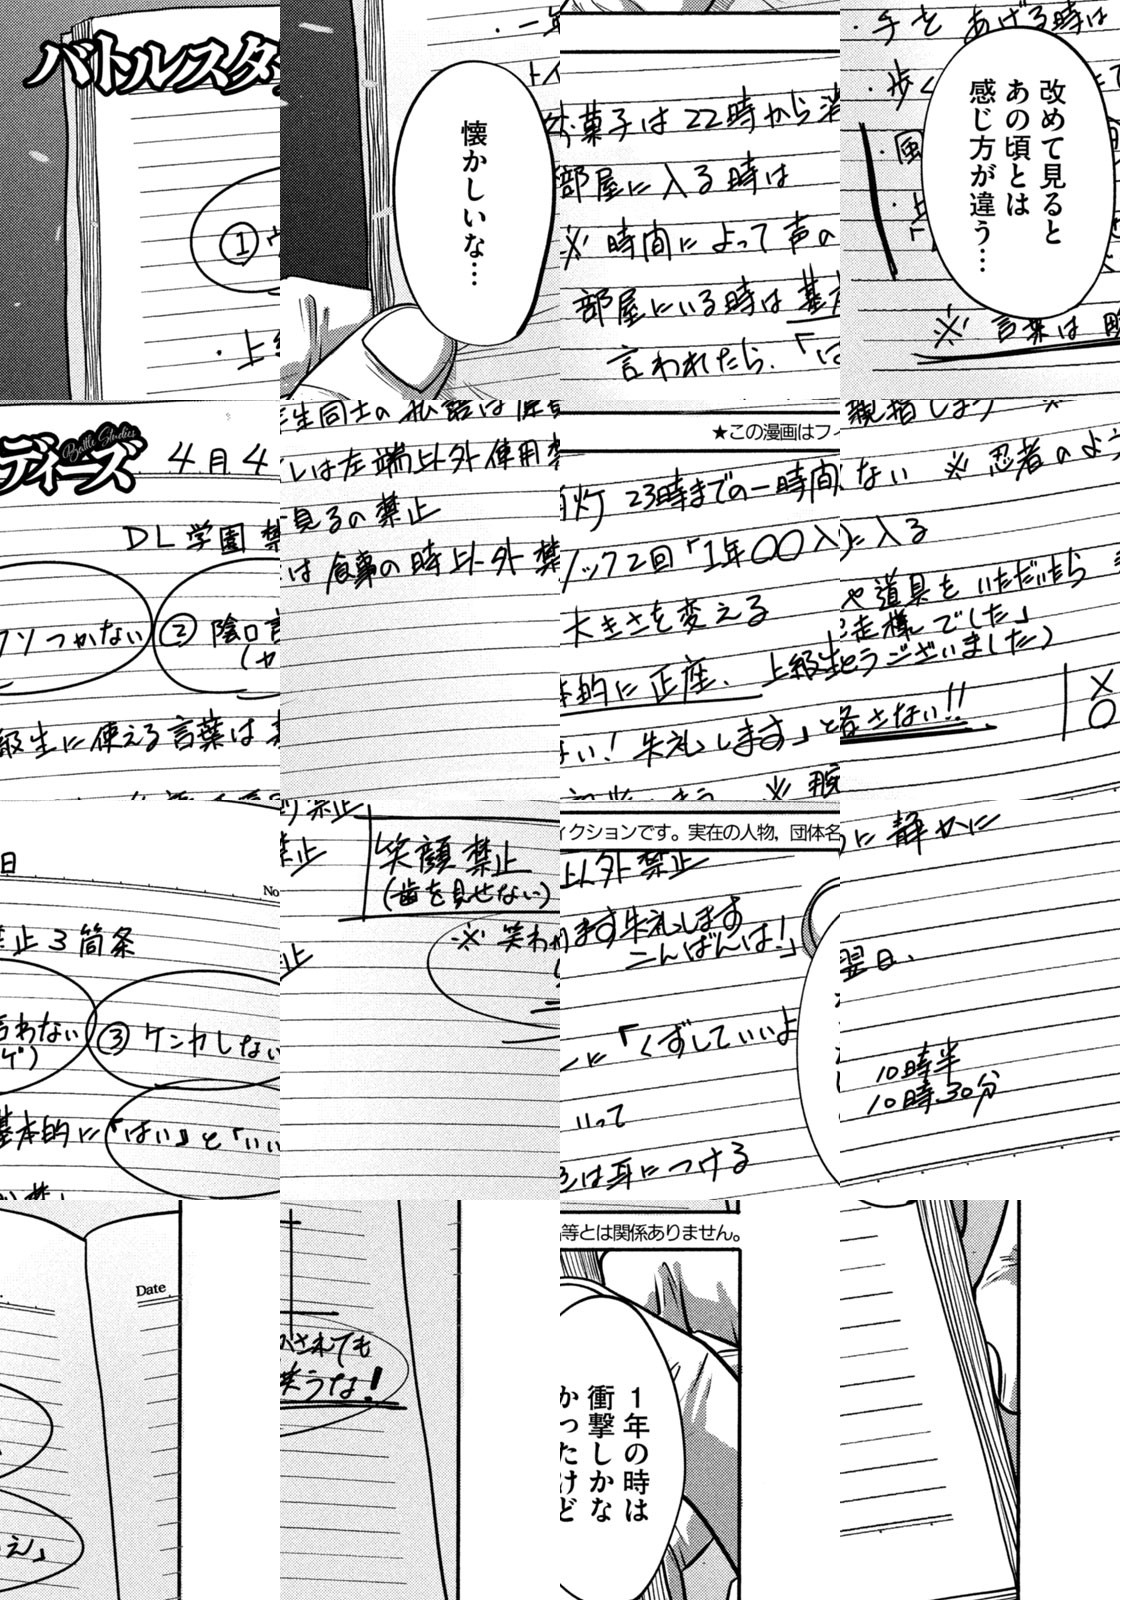 バトルスタディーズ
Battle Studies
4月4日
No
Date
DL学園 禁止3箇条
①ウソつかない ②陰口言わない ③ケンカしない
・上級生に使える言葉は基本的に「はい」と「いいえ」
懐かしいな…
・一年生同士の私語は原則禁止
トイレは左端以外使用禁止
見るの禁止
は食事の時以外禁止
笑顔禁止
(歯を見せない)
※笑わかされても
笑うな!
★この漫画はフィクションです。実在の人物,団体名等とは関係ありません。
お菓子は22時から消灯23時までの一時間以外禁止
部屋に入る時は ノック2回「1年〇〇入ります失礼します
こんばんは!」
※時間によって声の大きさを変える
部屋にいる時は基本的に正座、上級生に「くずしていいよ
言われたら、「はい!失礼します」といって
1年の時は
衝撃しかな
かったけど
改めて見ると
あの頃とは
感じ方が違う…
・手をあげる時は親指しまう ※は耳につける
・歩く ない ※忍者のように静かに
・風 に入る
や道具をいただいたら翌日、
走様でした」
とうございました)
※言葉は略さない!!
×10時半
○10時30分